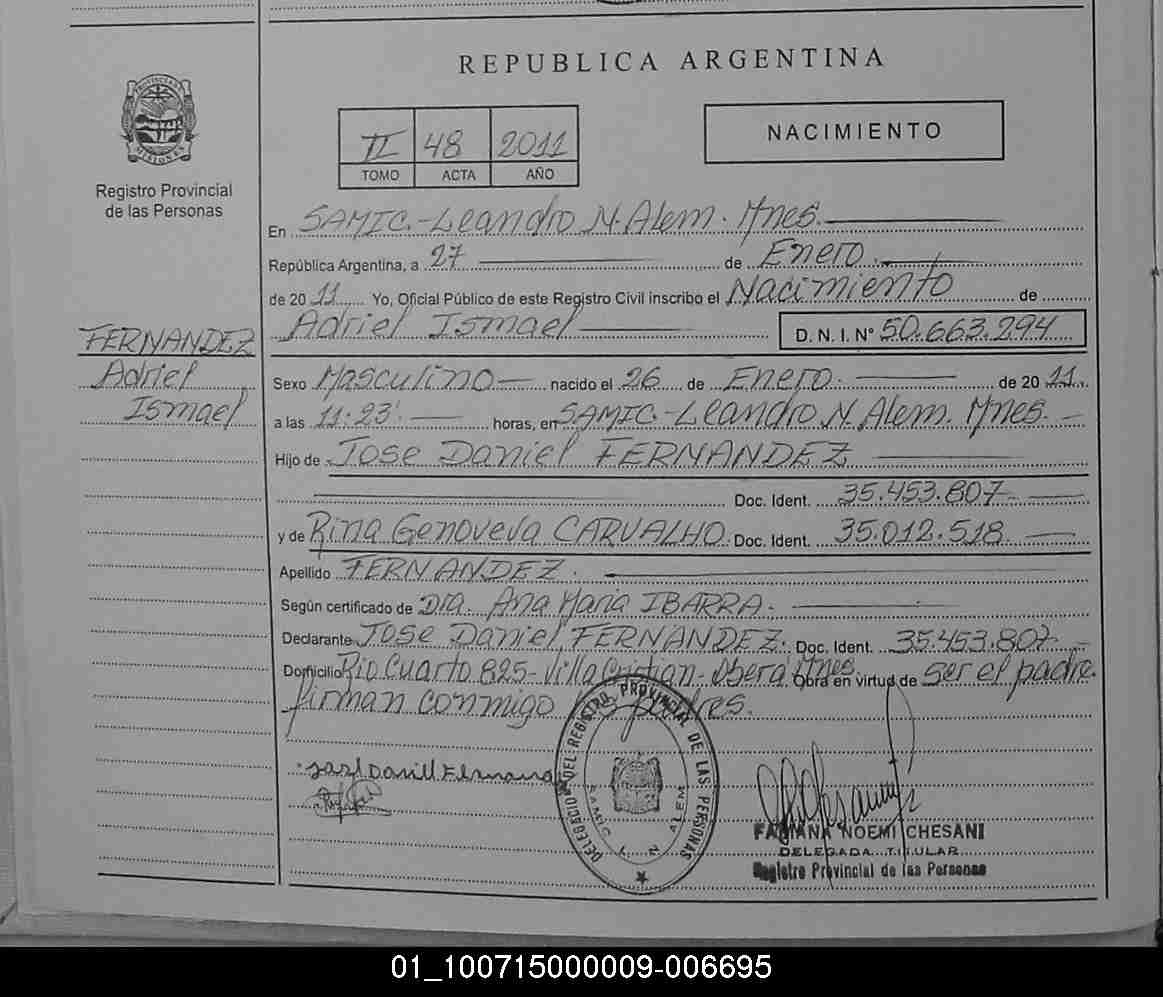 REPUBLICA ARGENTINA
PROVINCIA DE MISIONES
Registro Provincial
de las Personas
II 48 2011
TOMO ACTA AÑO
NACIMIENTO
En SAMIC.-Leandro N. Alem. Mnes.
República Argentina, a 27 de Enero.
de 20 11 Yo, Oficial Público de este Registro Civil inscribo el Nacimiento de
Adriel Ismael D. N. I. Nº 50.663.294
FERNANDEZ
Adriel
Ismael
Sexo Masculino nacido el 26 de Enero. de 20 11.
a las 11:23' horas, en SAMIC.-Leandro N. Alem. Mnes.
Hijo de Jose Daniel FERNANDEZ
Doc. Ident. 35.453.807
y de Rina Genoveva CARVALHO. Doc. Ident. 35.012.518
Apellido FERNANDEZ.
Según certificado de Dra. Ana Maria IBARRA.
Declarante Jose Daniel FERNANDEZ. Doc. Ident. 35.453.807
Domicilio Rio Cuarto 825-Villa Cristian-Oberá Mnes. Obra en virtud de ser el padre.
firman conmigo los padres.
DELEGACION DEL REGISTRO PROVINCIAL DE LAS PERSONAS
SAMIC L. N. ALEM
FABIANA NOEMI CHESANI
DELEGADA TITULAR
Registro Provincial de las Personas
01_100715000009-006695